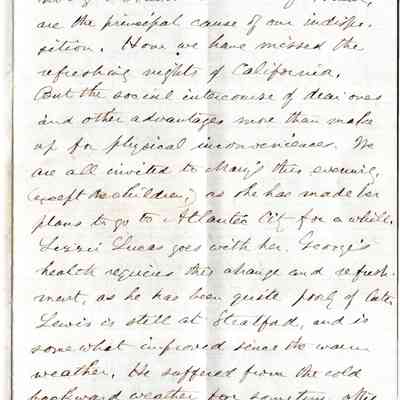 are the principal cause of our indispo-
sition. How we have missed the
refreshing nights of California.
But the social intercourse of dear ones
and other advantages more than makes
up for physical inconveniences. We
are all invited to Mary's this evening,
(except the children,) as she has made her
plans to go to Atlantic City for a while.
Lizzie Lucas goes with her. George's
health requires this change and refresh-
ment, as he has been quite poorly of late.
Lewis is still at Stratford, and is
somewhat improved since the warm
weather. He suffered from the cold
backward weather for some time after